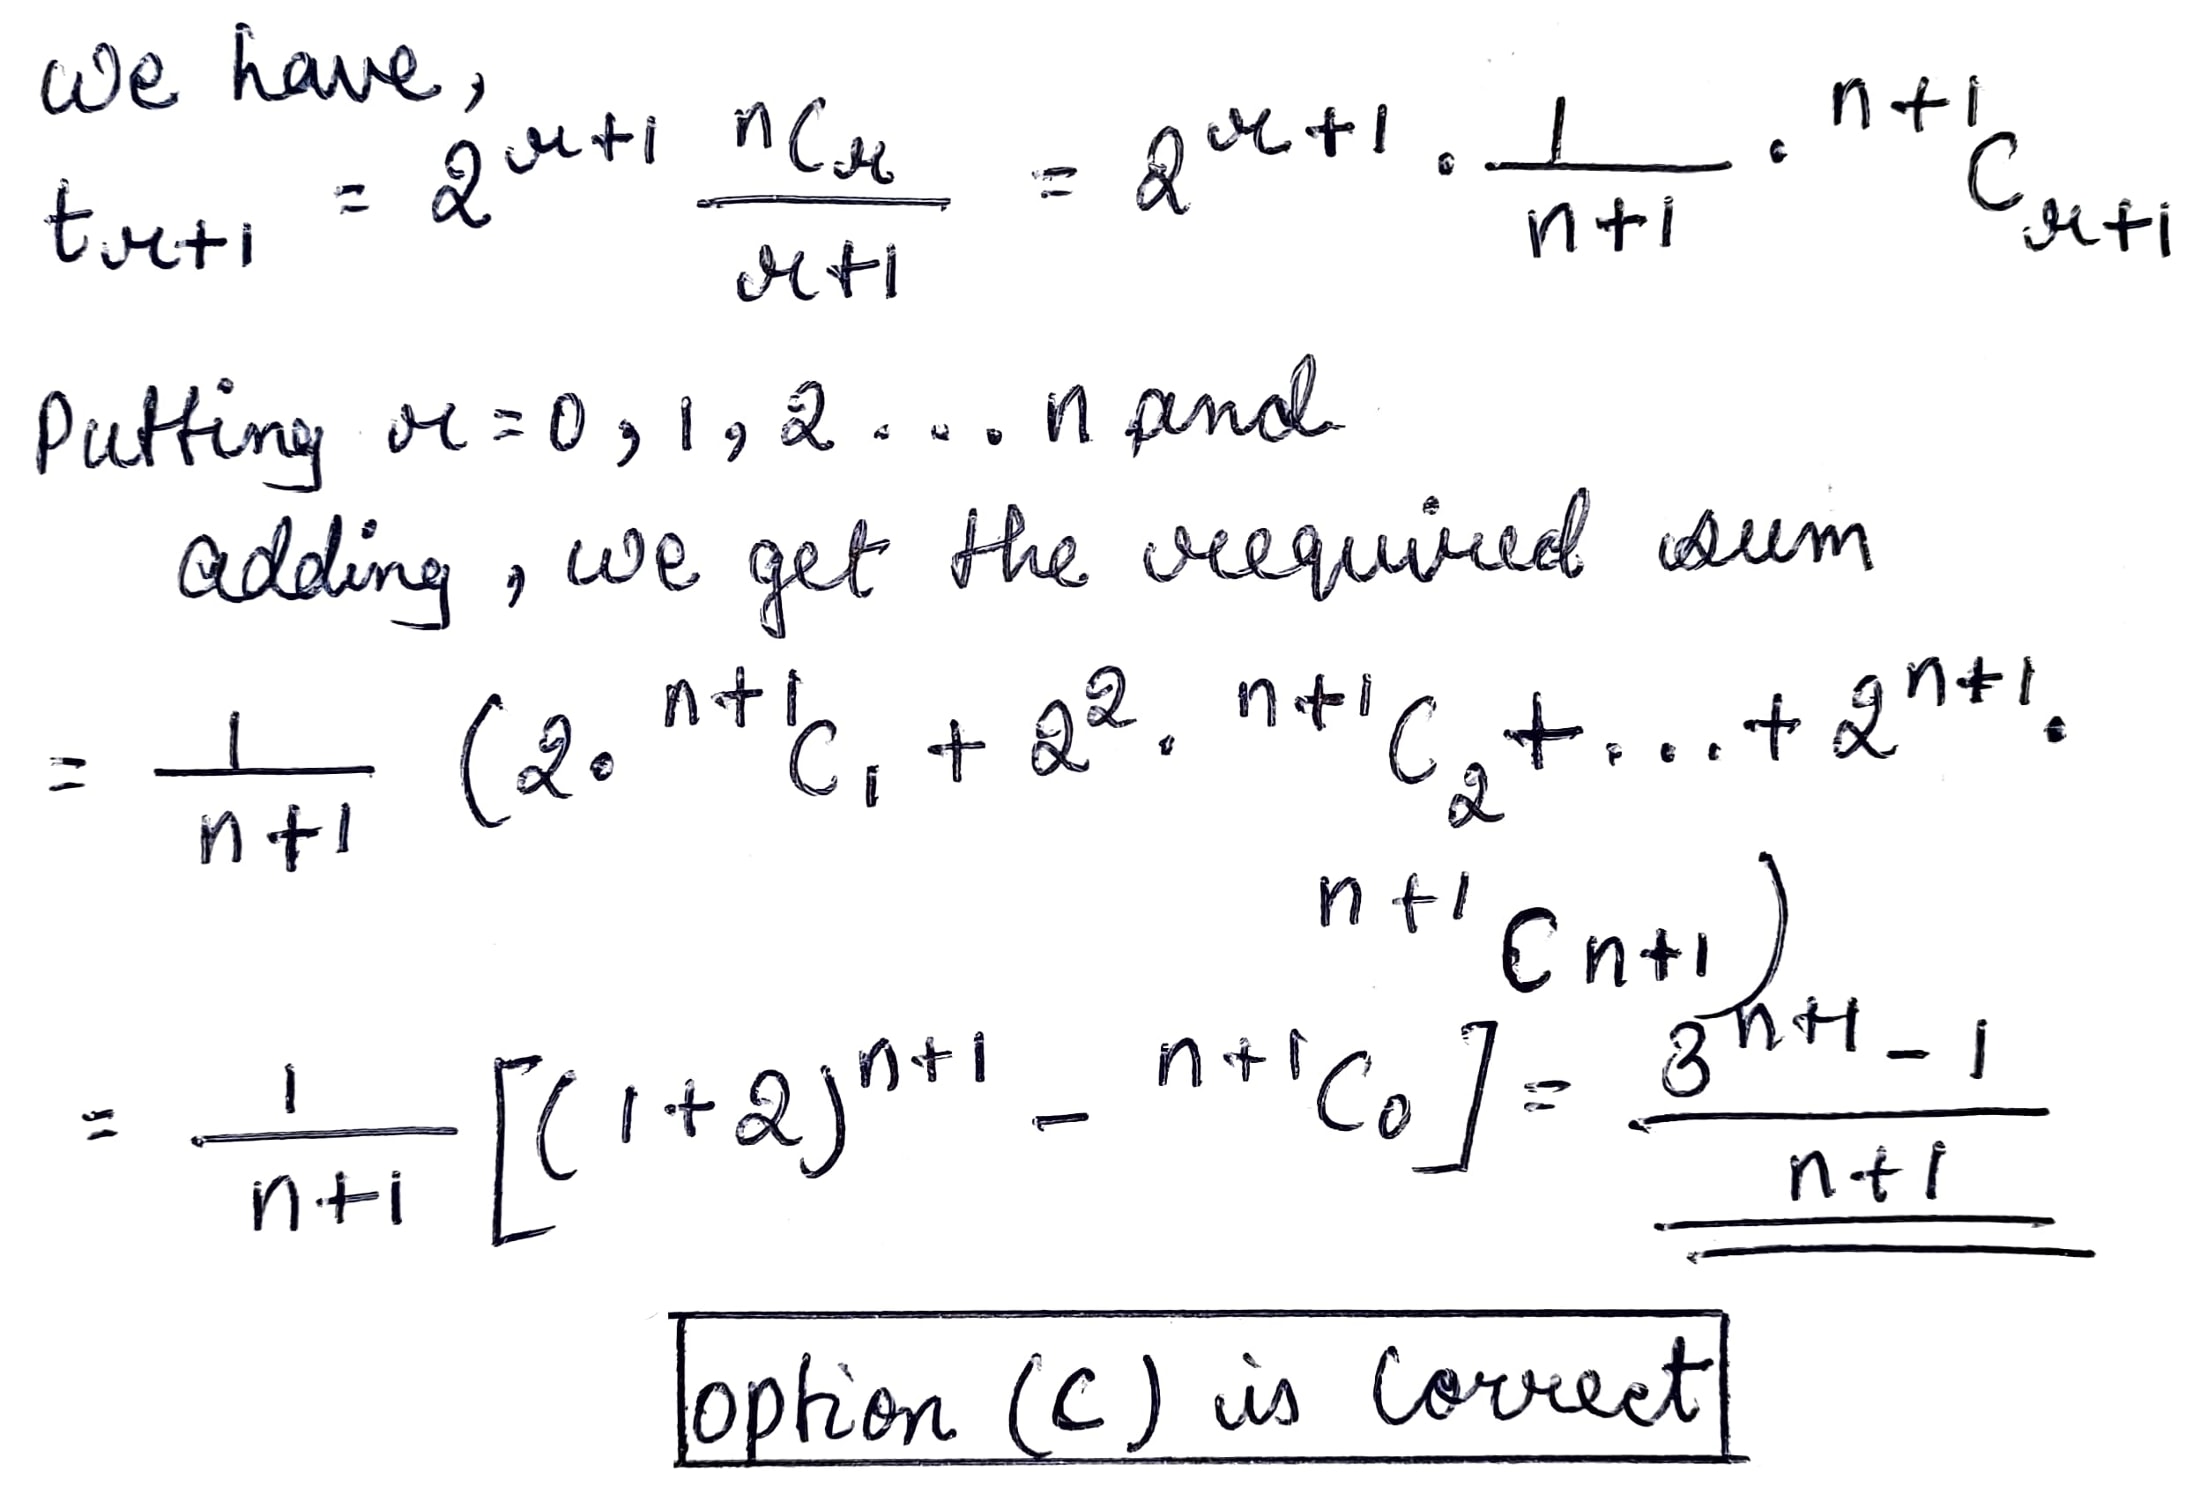 We have,
t_{r+1} = 2^{r+1} \frac{^nC_r}{r+1} = 2^{r+1} . \frac{1}{n+1} . ^{n+1}C_{r+1}
Putting r = 0, 1, 2 .... n and
adding, we get the required sum
= \frac{1}{n+1} (2. ^{n+1}C_1 + 2^2. ^{n+1}C_2 + .... + 2^{n+1}.
^{n+1}C_{n+1})
= \frac{1}{n+1} [(1+2)^{n+1} - ^{n+1}C_0] = \frac{3^{n+1} - 1}{n+1}
option (C) is Correct